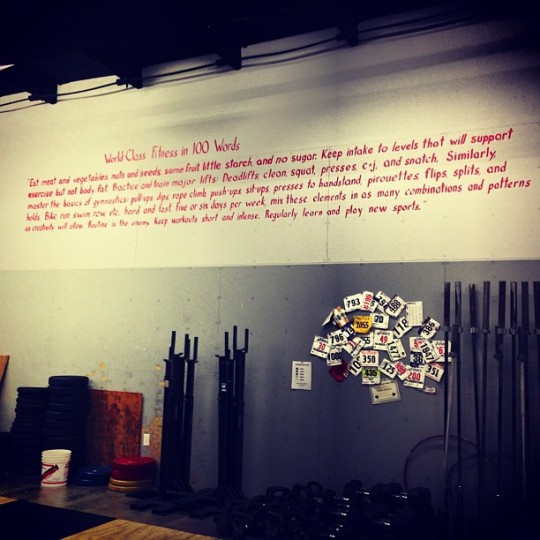 World-Class Fitness in 100 Words
"Eat meat and vegetables, nuts and seeds, some fruit, little starch, and no sugar. Keep intake to levels that will support
exercise but not body fat. Practice and train major lifts: Deadlifts, clean, squat, presses, c-j, and snatch. Similarly,
master the basics of gymnastics: pull-ups, dips, rope climb, push-ups, sit-ups, presses to handstand, pirouettes, flips, splits, and
holds. Bike, run, swim, row, etc, hard and fast. Five or six days per week, mix these elements in as many combinations and patterns
as creativity will allow. Routine is the enemy. Keep workouts short and intense. Regularly learn and play new sports."
793
1055
49
350
435
200